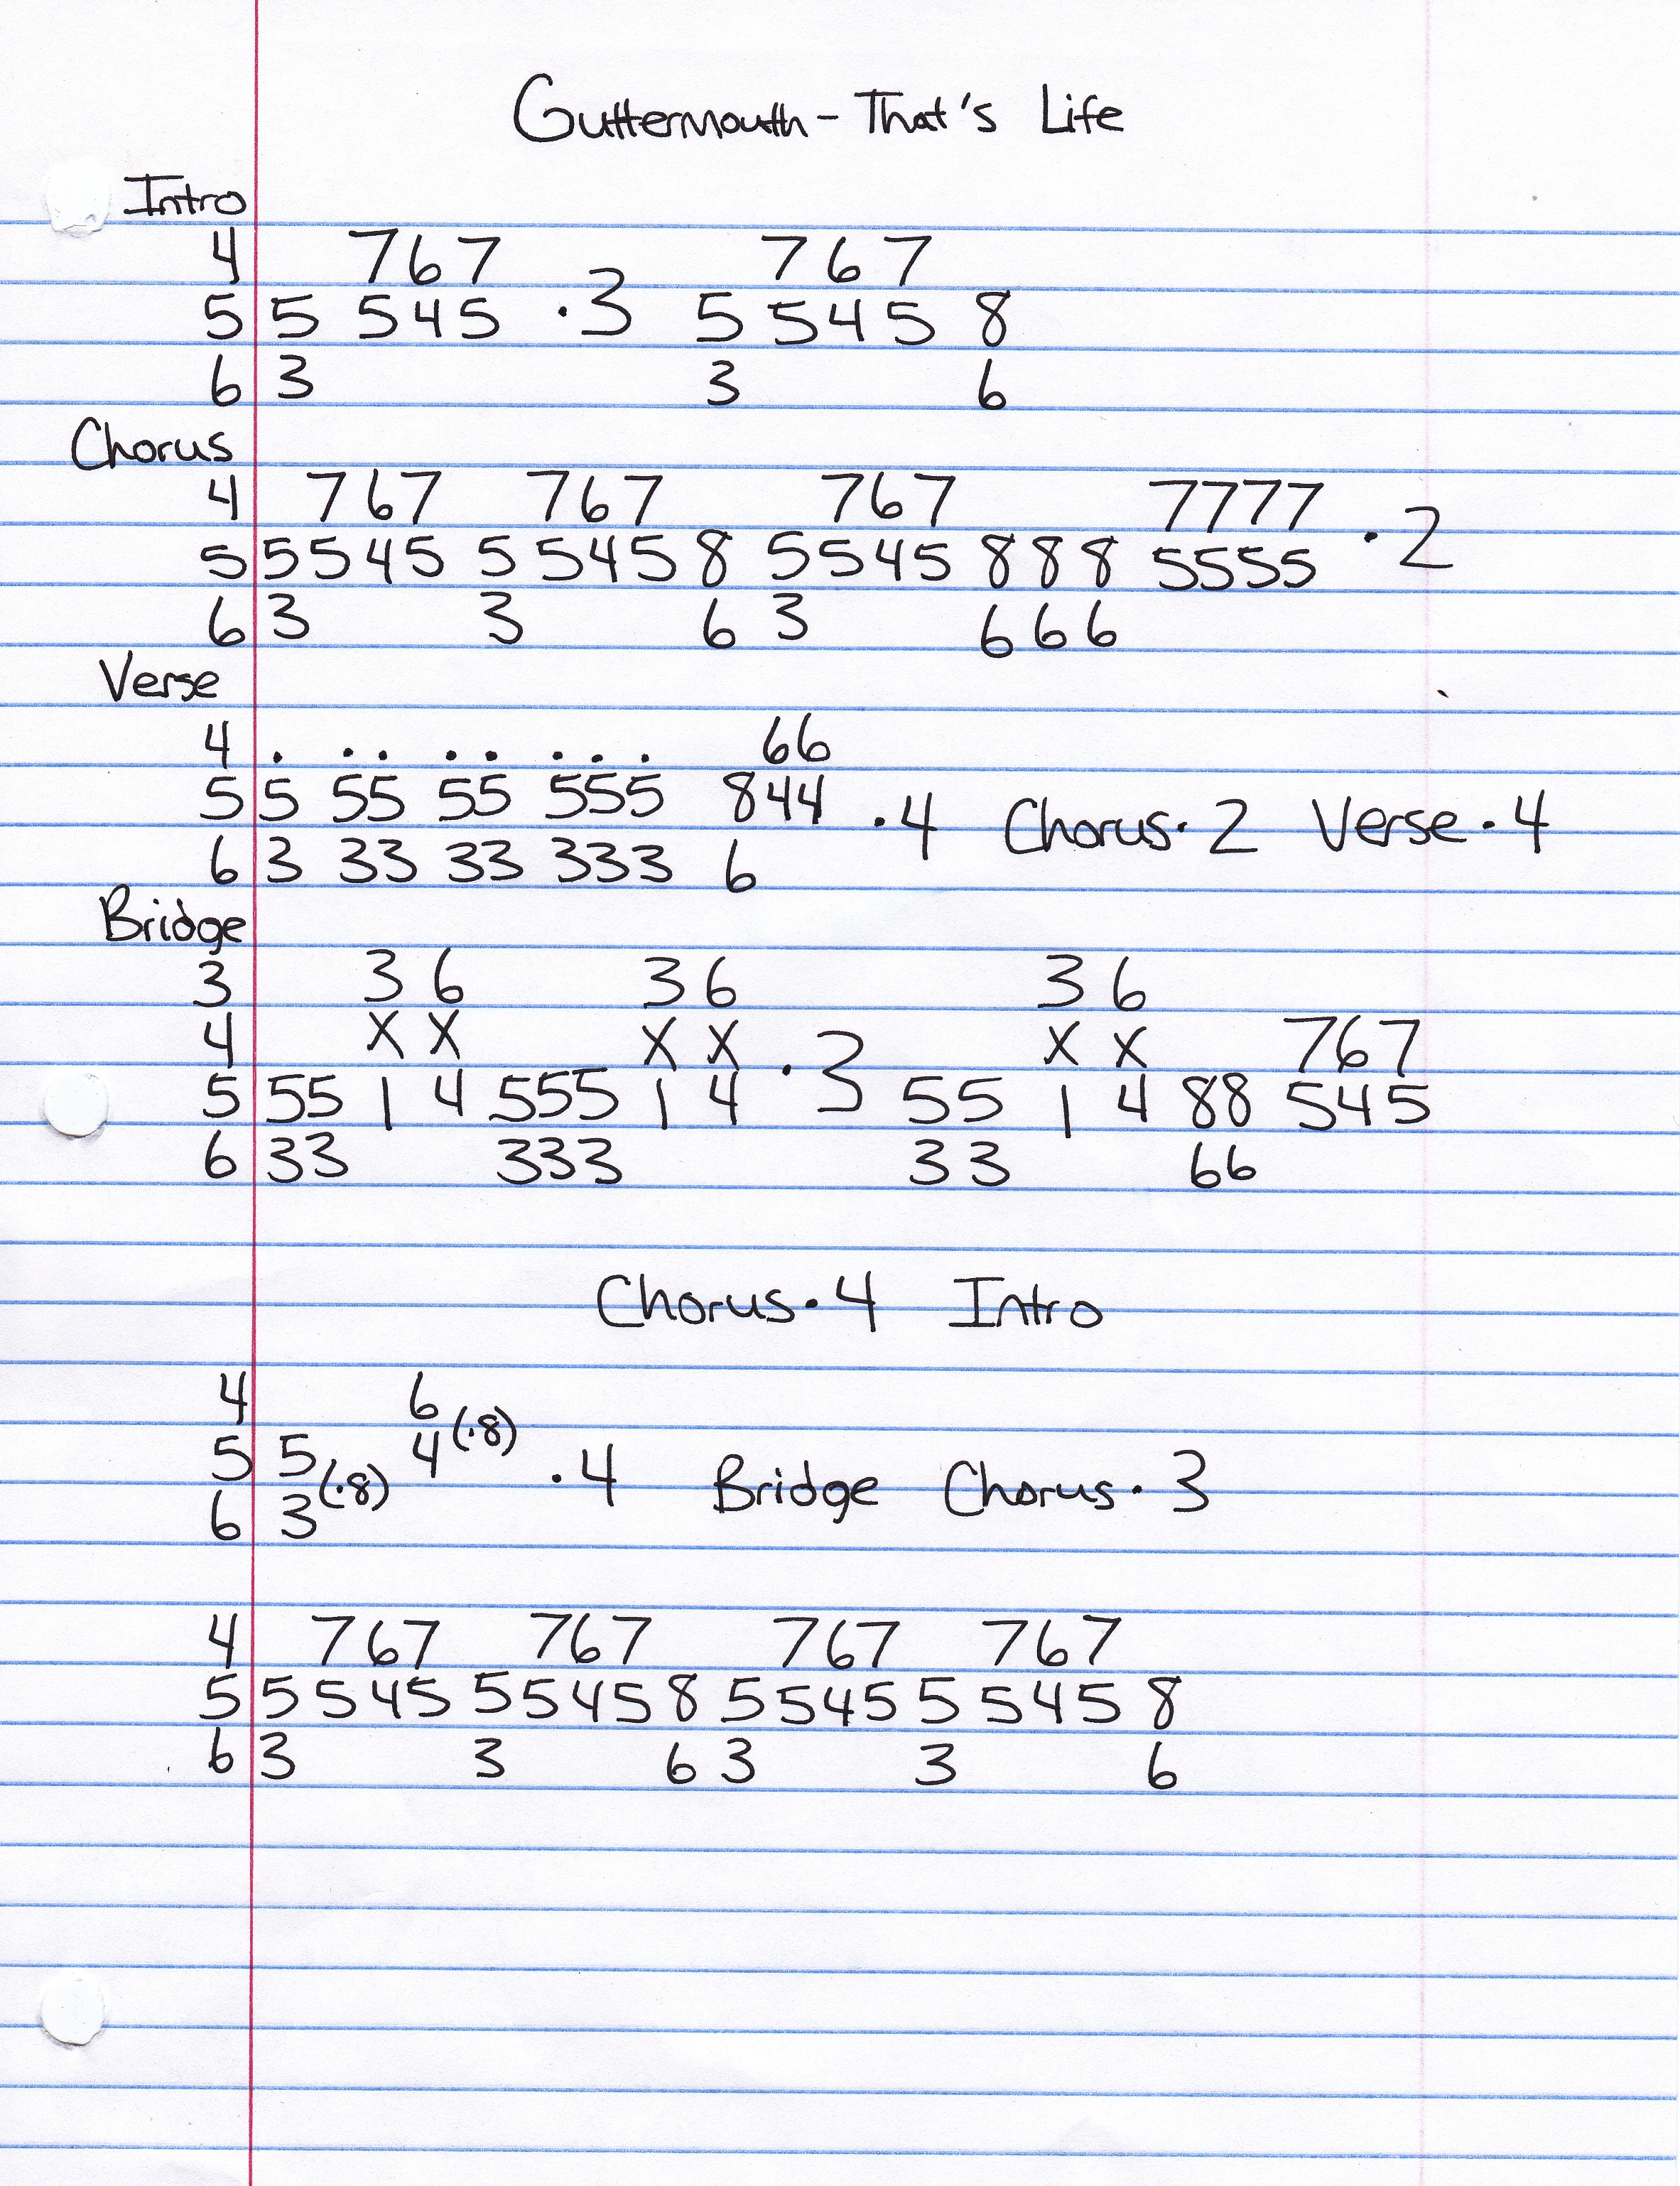 Guttermouth - That's Life
Intro
4 767 767
5 5 545 ·3 5 545 8
6 3 3 6
Chorus
4 767 767 767 7777
5 5545 5545 8 5545 888 5555 ·2
6 3 3 6 3 666
Verse
4 . .. .. ... 66
5 5 55 55 555 844 ·4 Chorus·2 Verse·4
6 3 33 33 333 6
Bridge
3 3 6 3 6 3 6
4 X X X X X X 767
5 55 1 4 555 1 4 ·3 55 1 4 88 545
6 33 333 33 66
Chorus·4 Intro
4 6
5 5 4 (·8)
6 3 (·8) ·4 Bridge Chorus·3
4 767 767 767 767
5 5545 5545 8 5545 5545 8
6 3 3 6 3 3 6